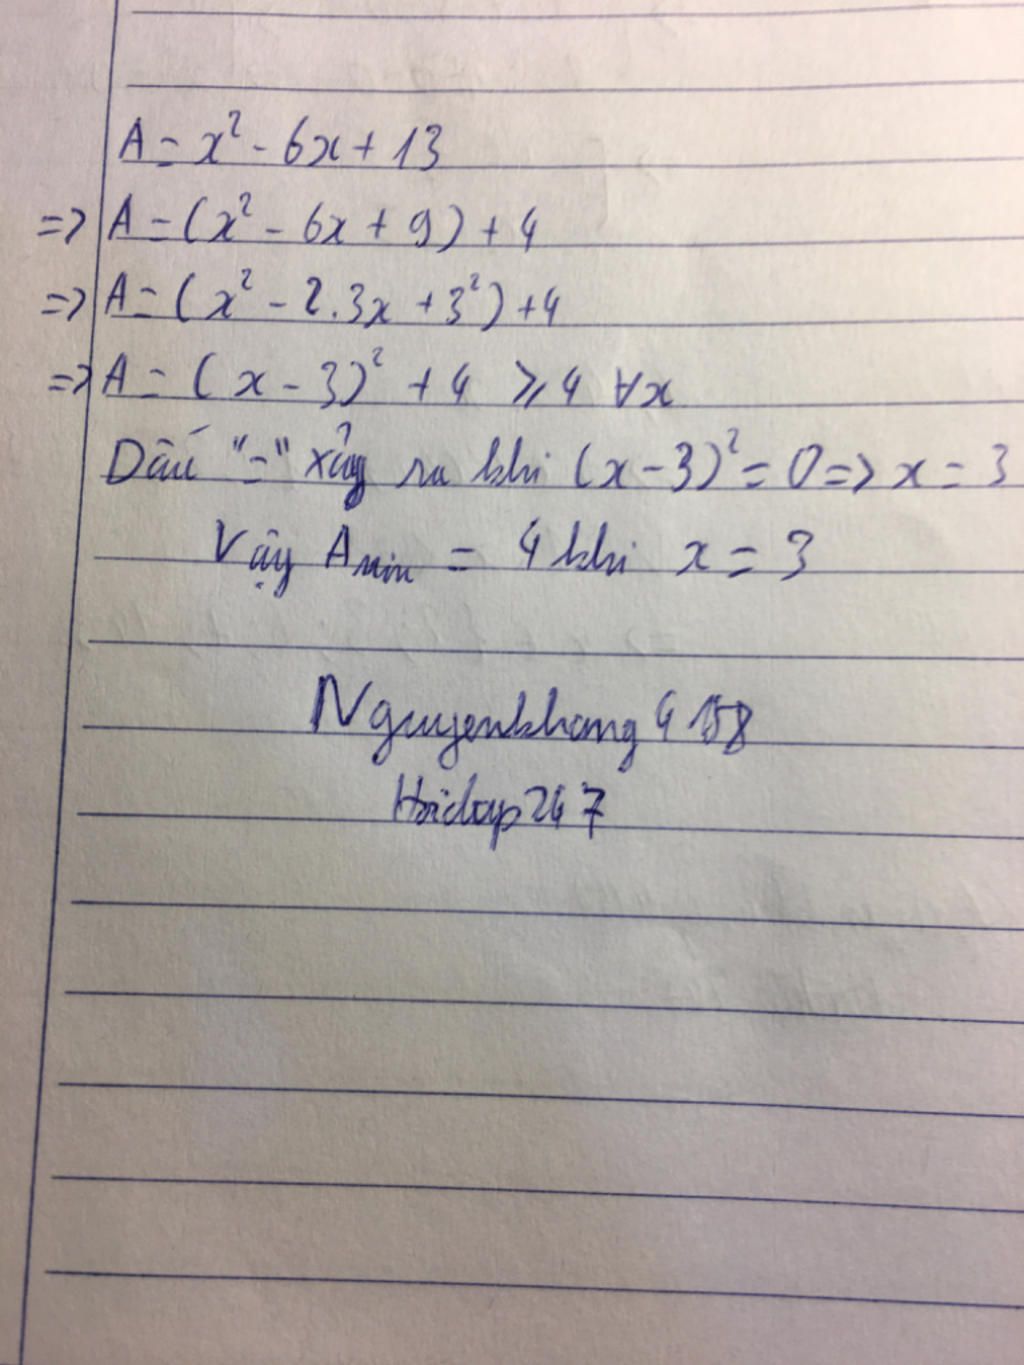 A = x² - 6x + 13
=> A = (x² - 6x + 9) + 4
=> A = (x² - 2.3x + 3²) + 4
=> A = (x - 3)² + 4 ⩾ 4 ∀x
Dấu "=" xảy ra khi (x - 3)² = 0 => x = 3
Vậy Amin = 4 khi x = 3
Nguyenkhang4158
Hoidap247